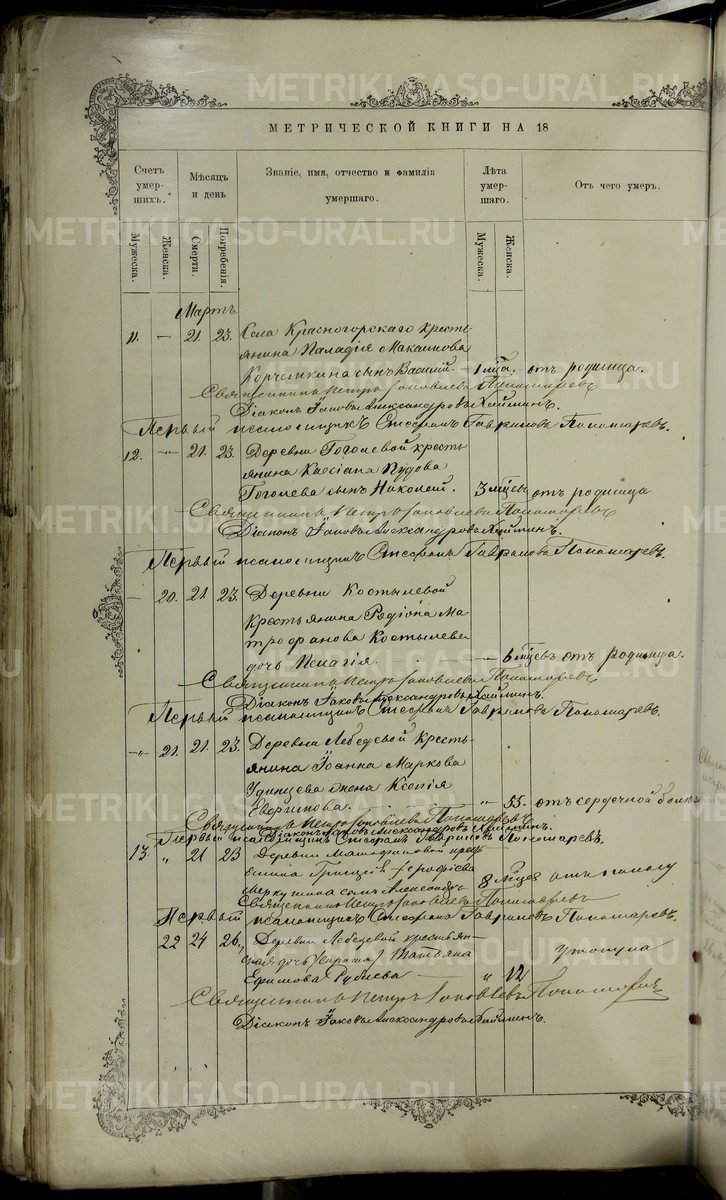 МЕТРИЧЕСКОЙ КНИГИ НА 18
Счетъ умерших.
Мѣсяцъ и день
Званіе, имя, отчество и фамилія умершаго.
Лѣта умершаго.
Отъ чего умеръ.
Мужеска.
Женска.
Смерти.
Погребенія.
Мужеска.
Женска.
Мартъ.
11. — 21. 23. Села Красногорскаго кресть-
янина Палладія Максимова
сынъ Василій. 1 отъ родимца.
Священникъ Петръ Іаковлевъ Пономаревъ
Діаконъ Іаковъ Александровъ
Первый псаломщикъ Стефанъ Гавриловъ Пономаревъ.
12. — 21. 23. Деревни Гоголевой кресть-
янина Кассіана Пудова
Гоголева сынъ Николай. 3 мѣсяцевъ отъ родимца
Священникъ Петръ Іаковлевъ Пономаревъ
Діаконъ Іаковъ Александровъ
Первый псаломщикъ Стефанъ Гавриловъ Пономаревъ.
— 20. 21. 23. Деревни Костылевой
Крестьянина Родіона Ма-
трофанова Костылева
дочь Пелагія. — 6 мѣсяцевъ отъ родимца.
Священникъ Петръ Іаковлевъ Пономаревъ
Діаконъ Іаковъ Александровъ
Первый псаломщикъ Стефанъ Гавриловъ Пономаревъ.
" 21. 21. 23. Деревни Лебедевой Кресть-
янина Іоанна Маркова
Удинцева жена Ксенія
" 55. отъ сердечной
Священникъ Петръ Іаковлевъ Пономаревъ
Діаконъ Іаковъ Александровъ
Первый псаломщикъ Стефанъ Гавриловъ Пономаревъ.
13. " 21 23 Деревни
Меркушина сынъ Александръ 8 отъ поносу
Священникъ Петръ Іаковлевъ Пономаревъ
Первый псаломщикъ Стефанъ Гавриловъ Пономаревъ.
22 24 26 Деревни Лебедевой крестьян-
дочь Татьяна
Ефимова " 12
Священникъ Петръ Іаковлевъ Пономаревъ
Діаконъ Іаковъ Александровъ
METRIKI.GASO-URAL.RU